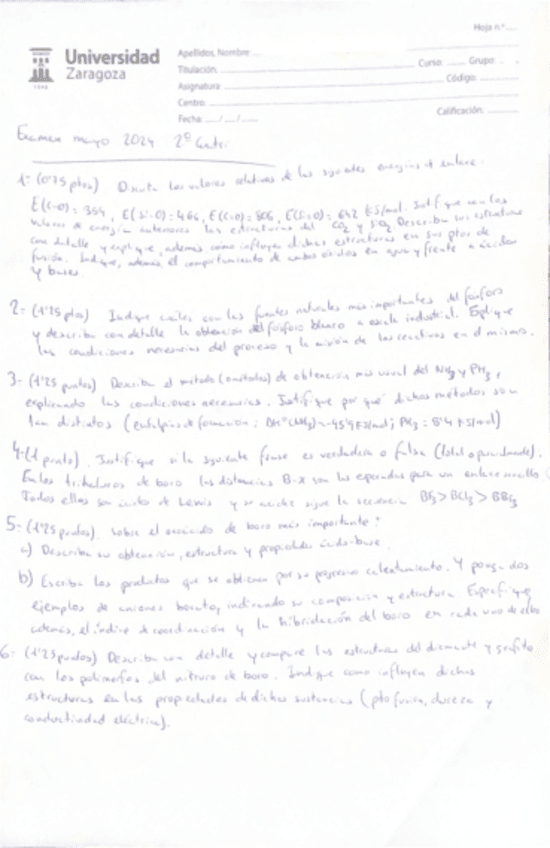 Hoja n.º
Universidad
Zaragoza
1542
Apellidos, Nombre:
Titulación: Curso: Grupo:
Asignatura: Código:
Centro:
Fecha: / / Calificación:
Examen mayo 2024 2º Cuatri
1- (0'75 ptos) Discuta los valores relativos de las siguientes energías de enlace.
E(C-O) = 359, E(Si-O) = 466, E(C=O) = 806, E(Si=O) = 642 kJ/mol. Justifique con los
valores de energía anteriores las estructuras del CO2 y SiO2. Describa sus estructuras
con detalle y explique, además como influyen dichas estructuras en sus ptos de
fusión. Indique, además el comportamiento de ambos óxidos en agua y frente a ácidos
y bases
2- (1'25 ptos) Indique cuales son las fuentes naturales más importantes del fósforo
y describa con detalle la obtención del fósforo blanco a escala industrial. Explique
las condiciones necesarias del proceso y la misión de los reactivos en el mismo.
3- (1'25 puntos) Describa el método (o métodos) de obtención más usual del NH3 y PH3,
explicando las condiciones necesarias. Justifique por qué dichos métodos son
tan distintos (entalpías de formación: ΔHº(NH3)=-45'9 kJ/mol; PH3 = 5'4 kJ/mol)
4- (1 punto). Justifique si la siguiente frase es verdadera o falsa (total o parcialmente).
En los trihaluros de boro las distancias B-X son las esperadas para un enlace sencillo.
Todos ellos son ácidos de Lewis y su acidez sigue la secuencia BF3 > BCl3 > BBr3
5- (1'25 puntos). Sobre el oxoácido de boro más importante:
a) Describa su obtención, estructura y propiedades ácido-base
b) Escriba los productos que se obtienen por su progresivo calentamiento. Y ponga dos
ejemplos de aniones borato, indicando su composición y estructura. Especifique
además, el índice de coordinación y la hibridación del boro en cada uno de ellos
6- (1'25 puntos) Describa con detalle y compare las estructuras del diamante y grafito
con los polimorfos del nitruro de boro. Indique como influyen dichas
estructuras en las propiedades de dichas sustancias (pto fusión, dureza y
conductividad eléctrica).